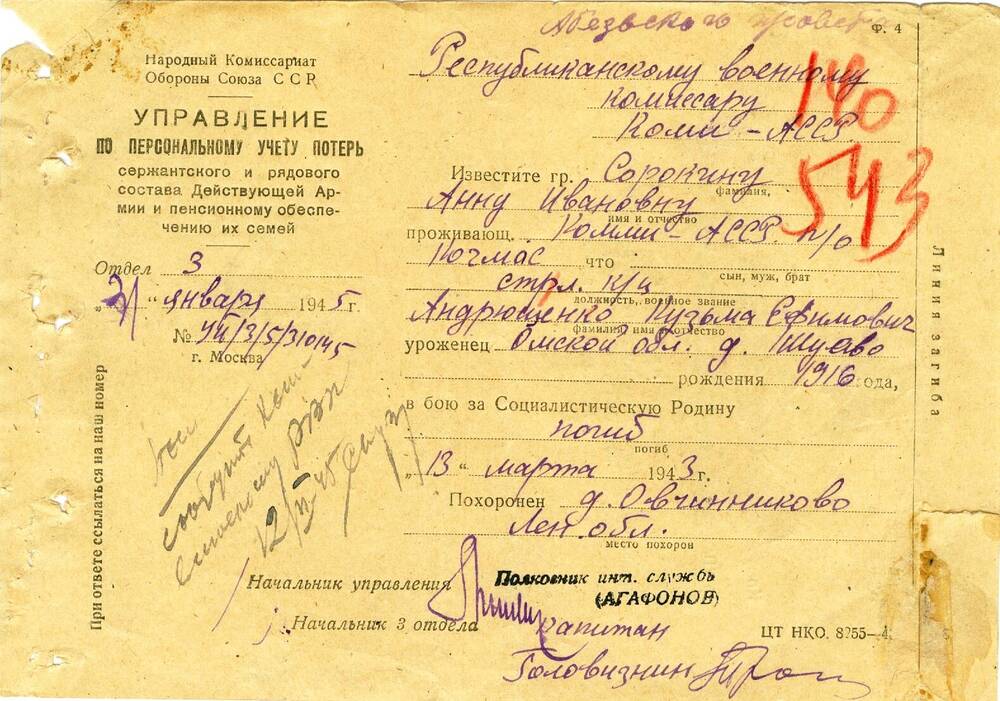 Ф. 4
Народный Комиссариат
Обороны Союза ССР
УПРАВЛЕНИЕ
ПО ПЕРСОНАЛЬНОМУ УЧЕТУ ПОТЕРЬ
сержантского и рядового
состава Действующей Ар-
мии и пенсионному обеспе-
чению их семей
Отдел 3
"31" января 1945 г.
г. Москва
При ответе ссылаться на наш номер
Республиканскому военному
комиссару
Коми-АССР
140
543
Известите гр. Сорокину
фамилия,
Анну Ивановну
имя и отчество
проживающ. Комми-АССР п/о
Кочмас что
сын, муж, брат
стрл. к/ц
должность, военное звание
Андрющенко Кузьма Ефимович
фамилия, имя и отчество
уроженец Омской обл. д.
рождения 1916 года,
в бою за Социалистическую Родину
погиб
погиб
"13" марта 1943 г.
Похоронен д. Овчинниково
Лен. обл.
место похорон
сообщить
Начальник управления Полковник инт. службы
(АГАФОНОВ)
Начальник 3 отдела капитан
Головизнин
ЦТ НКО. 8255—4.
Линия загиба